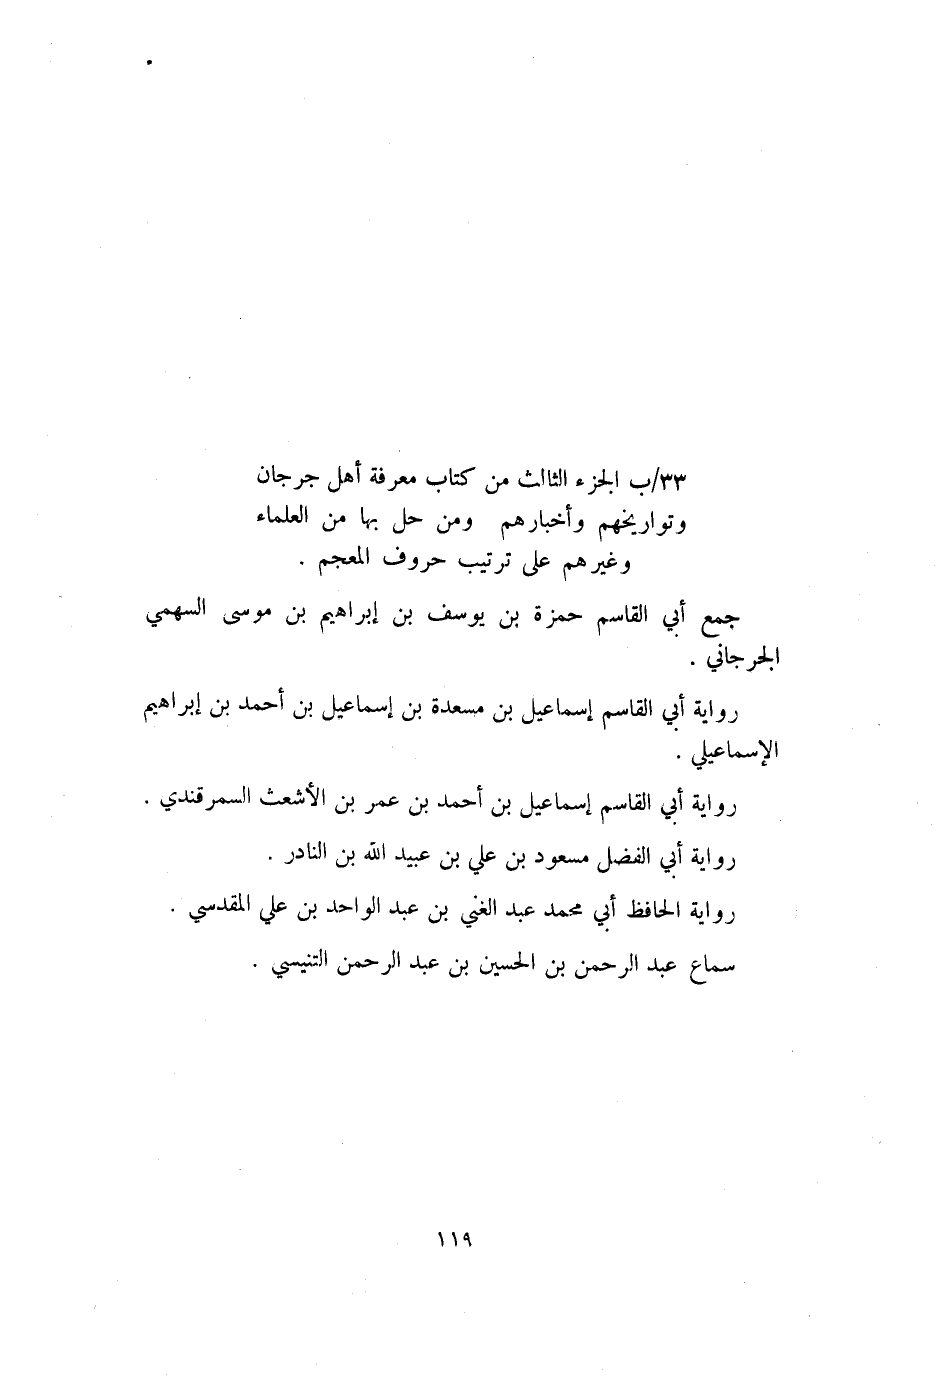 ٣٣/ب الجزء الثالث من كتاب معرفة أهل جرجان
وتواريخهم وأخبارهم ومن حل بها من العلماء
وغيرهم على ترتيب حروف المعجم .
جمع أبي القاسم حمزة بن يوسف بن إبراهيم بن موسى السهمي
الجرجاني .
رواية أبي القاسم إسماعيل بن مسعدة بن إسماعيل بن أحمد بن إبراهيم
الإسماعيلي .
رواية أبي القاسم إسماعيل بن أحمد بن عمر بن الأشعث السمرقندي .
رواية أبي الفضل مسعود بن علي بن عبيد الله بن النادر .
رواية الحافظ أبي محمد عبد الغني بن عبد الواحد بن علي المقدسي .
سماع عبد الرحمن بن الحسين بن عبد الرحمن التنيسي .
١١٩